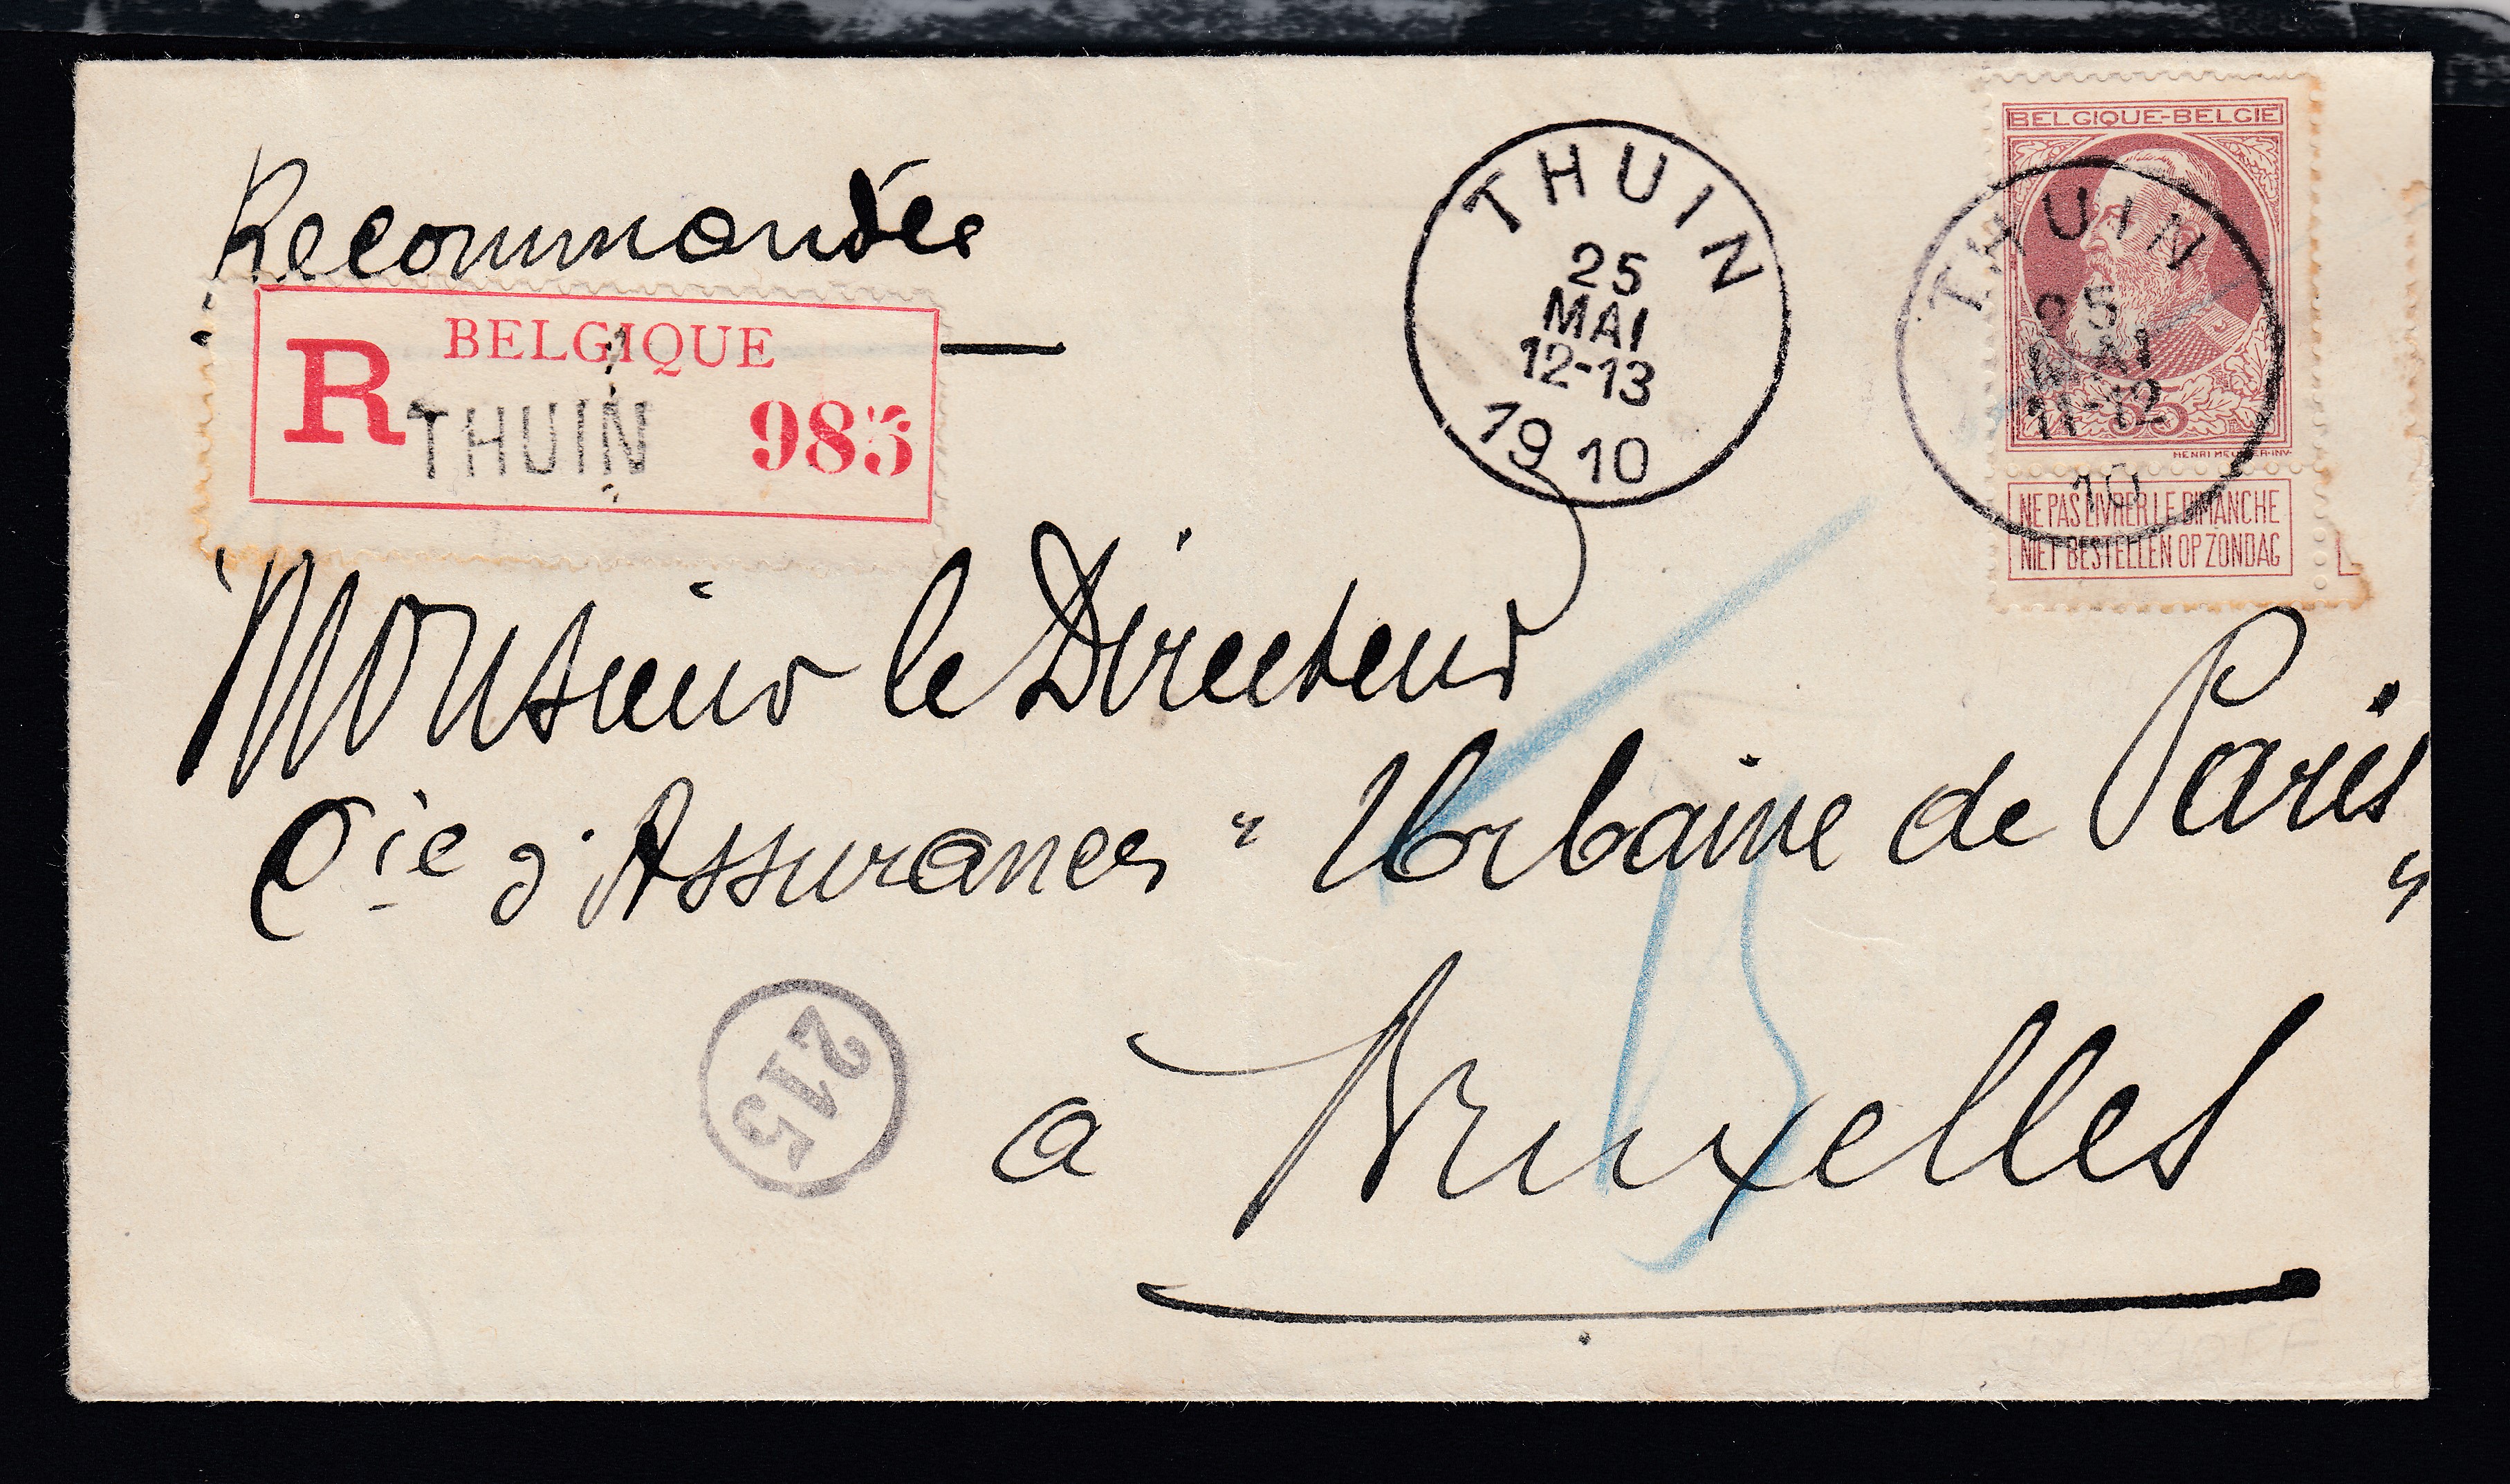 Recommandée
R BELGIQUE
THUIN 985
THUIN
25
MAI
12-13
1910
BELGIQUE-BELGIE
THUIN
25
MAI
11-12
10
35
HENRI MEUNIER·INV
NE PAS LIVRER LE DIMANCHE
NIET BESTELLEN OP ZONDAG
Monsieur le Directeur
Cie d'Assurances "Urbaine de Paris"
215
à Bruxelles